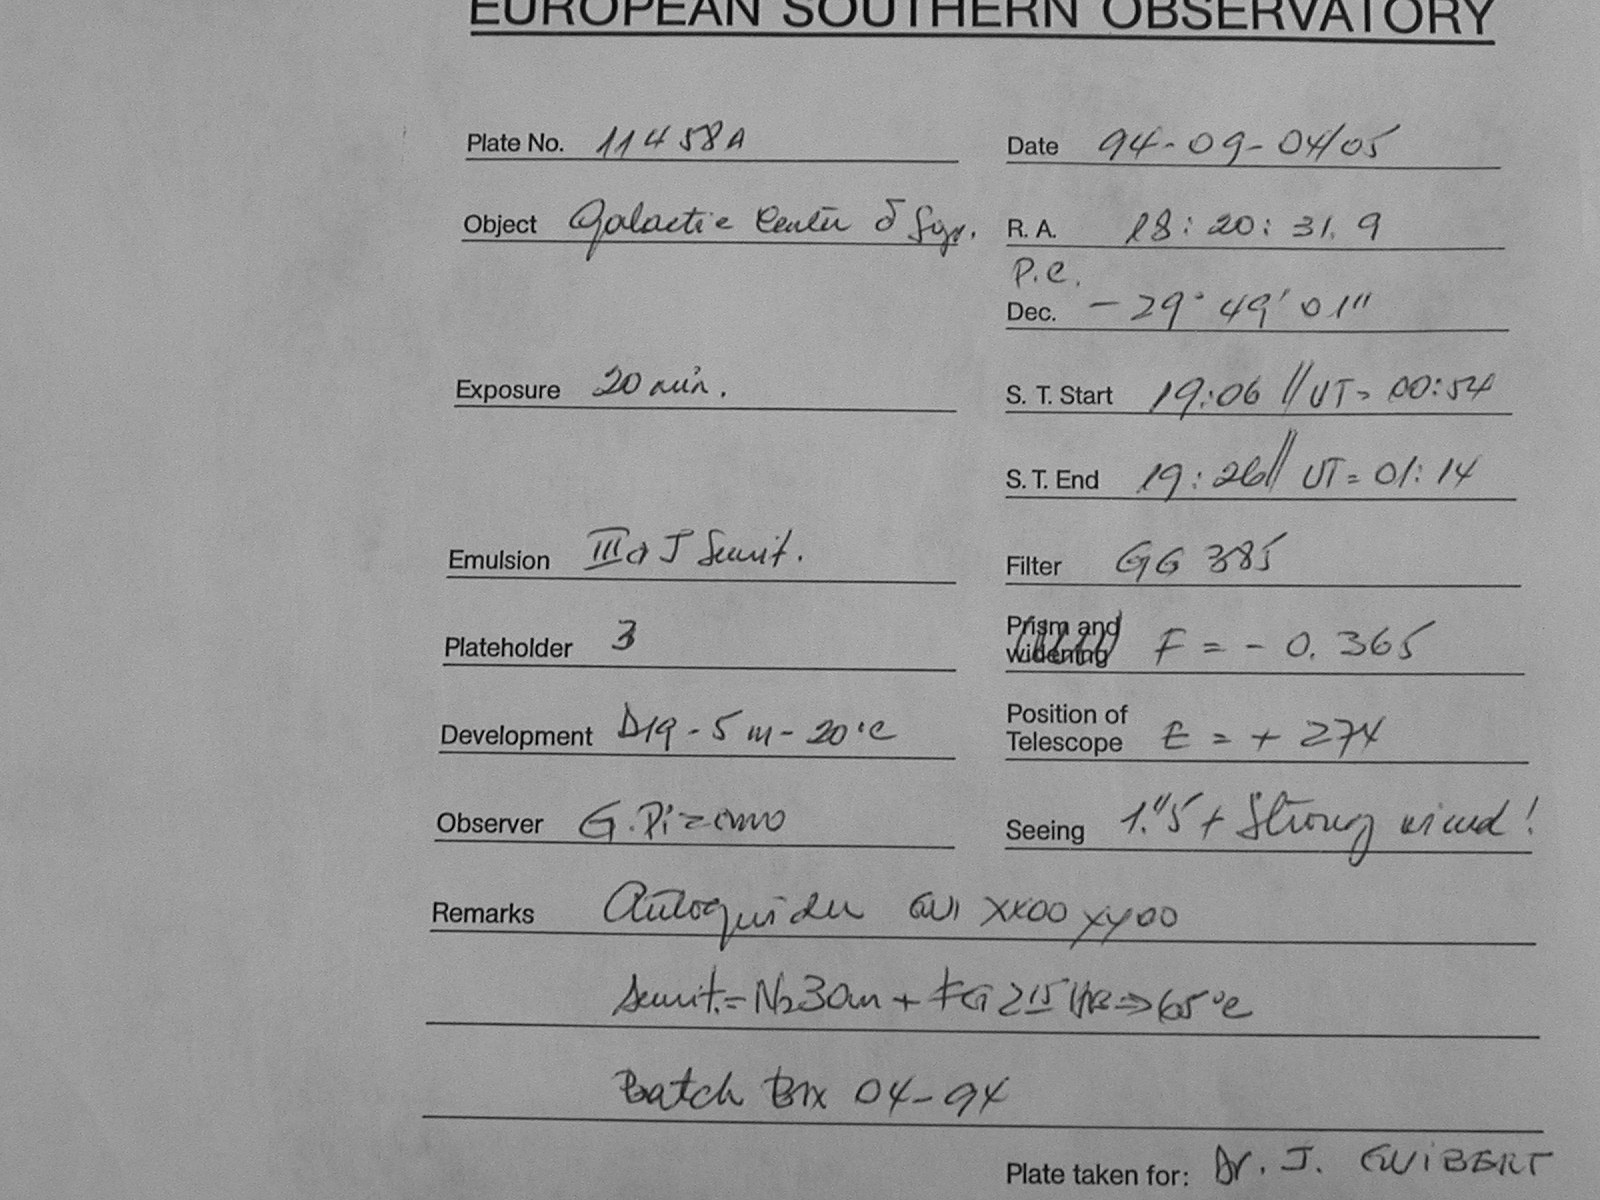 EUROPEAN SOUTHERN OBSERVATORY
Plate No. 11458A
Date 94-09-04/05
Object Galactic Center δ Sgr.
R. A. 18:20:31.9
P.C.
Dec. -29° 49' 01"
Exposure 20 min.
S. T. Start 19:06 // UT= 00:54
S. T. End 19:26 // UT= 01:14
Emulsion IIIaJ Sensit.
Filter GG 385
Plateholder 3
Prism and widening F = - 0.365
Development D19 - 5 m - 20°C
Position of Telescope E = + 274
Observer G. Pizarro
Seeing 1."5 + Strong wind!
Remarks Autoguider GUI XX00 XY00
Sensit.= N2 30m + FG 215 Hrs => 65°C
Batch Box 04-94
Plate taken for: Dr. J. GUIBERT